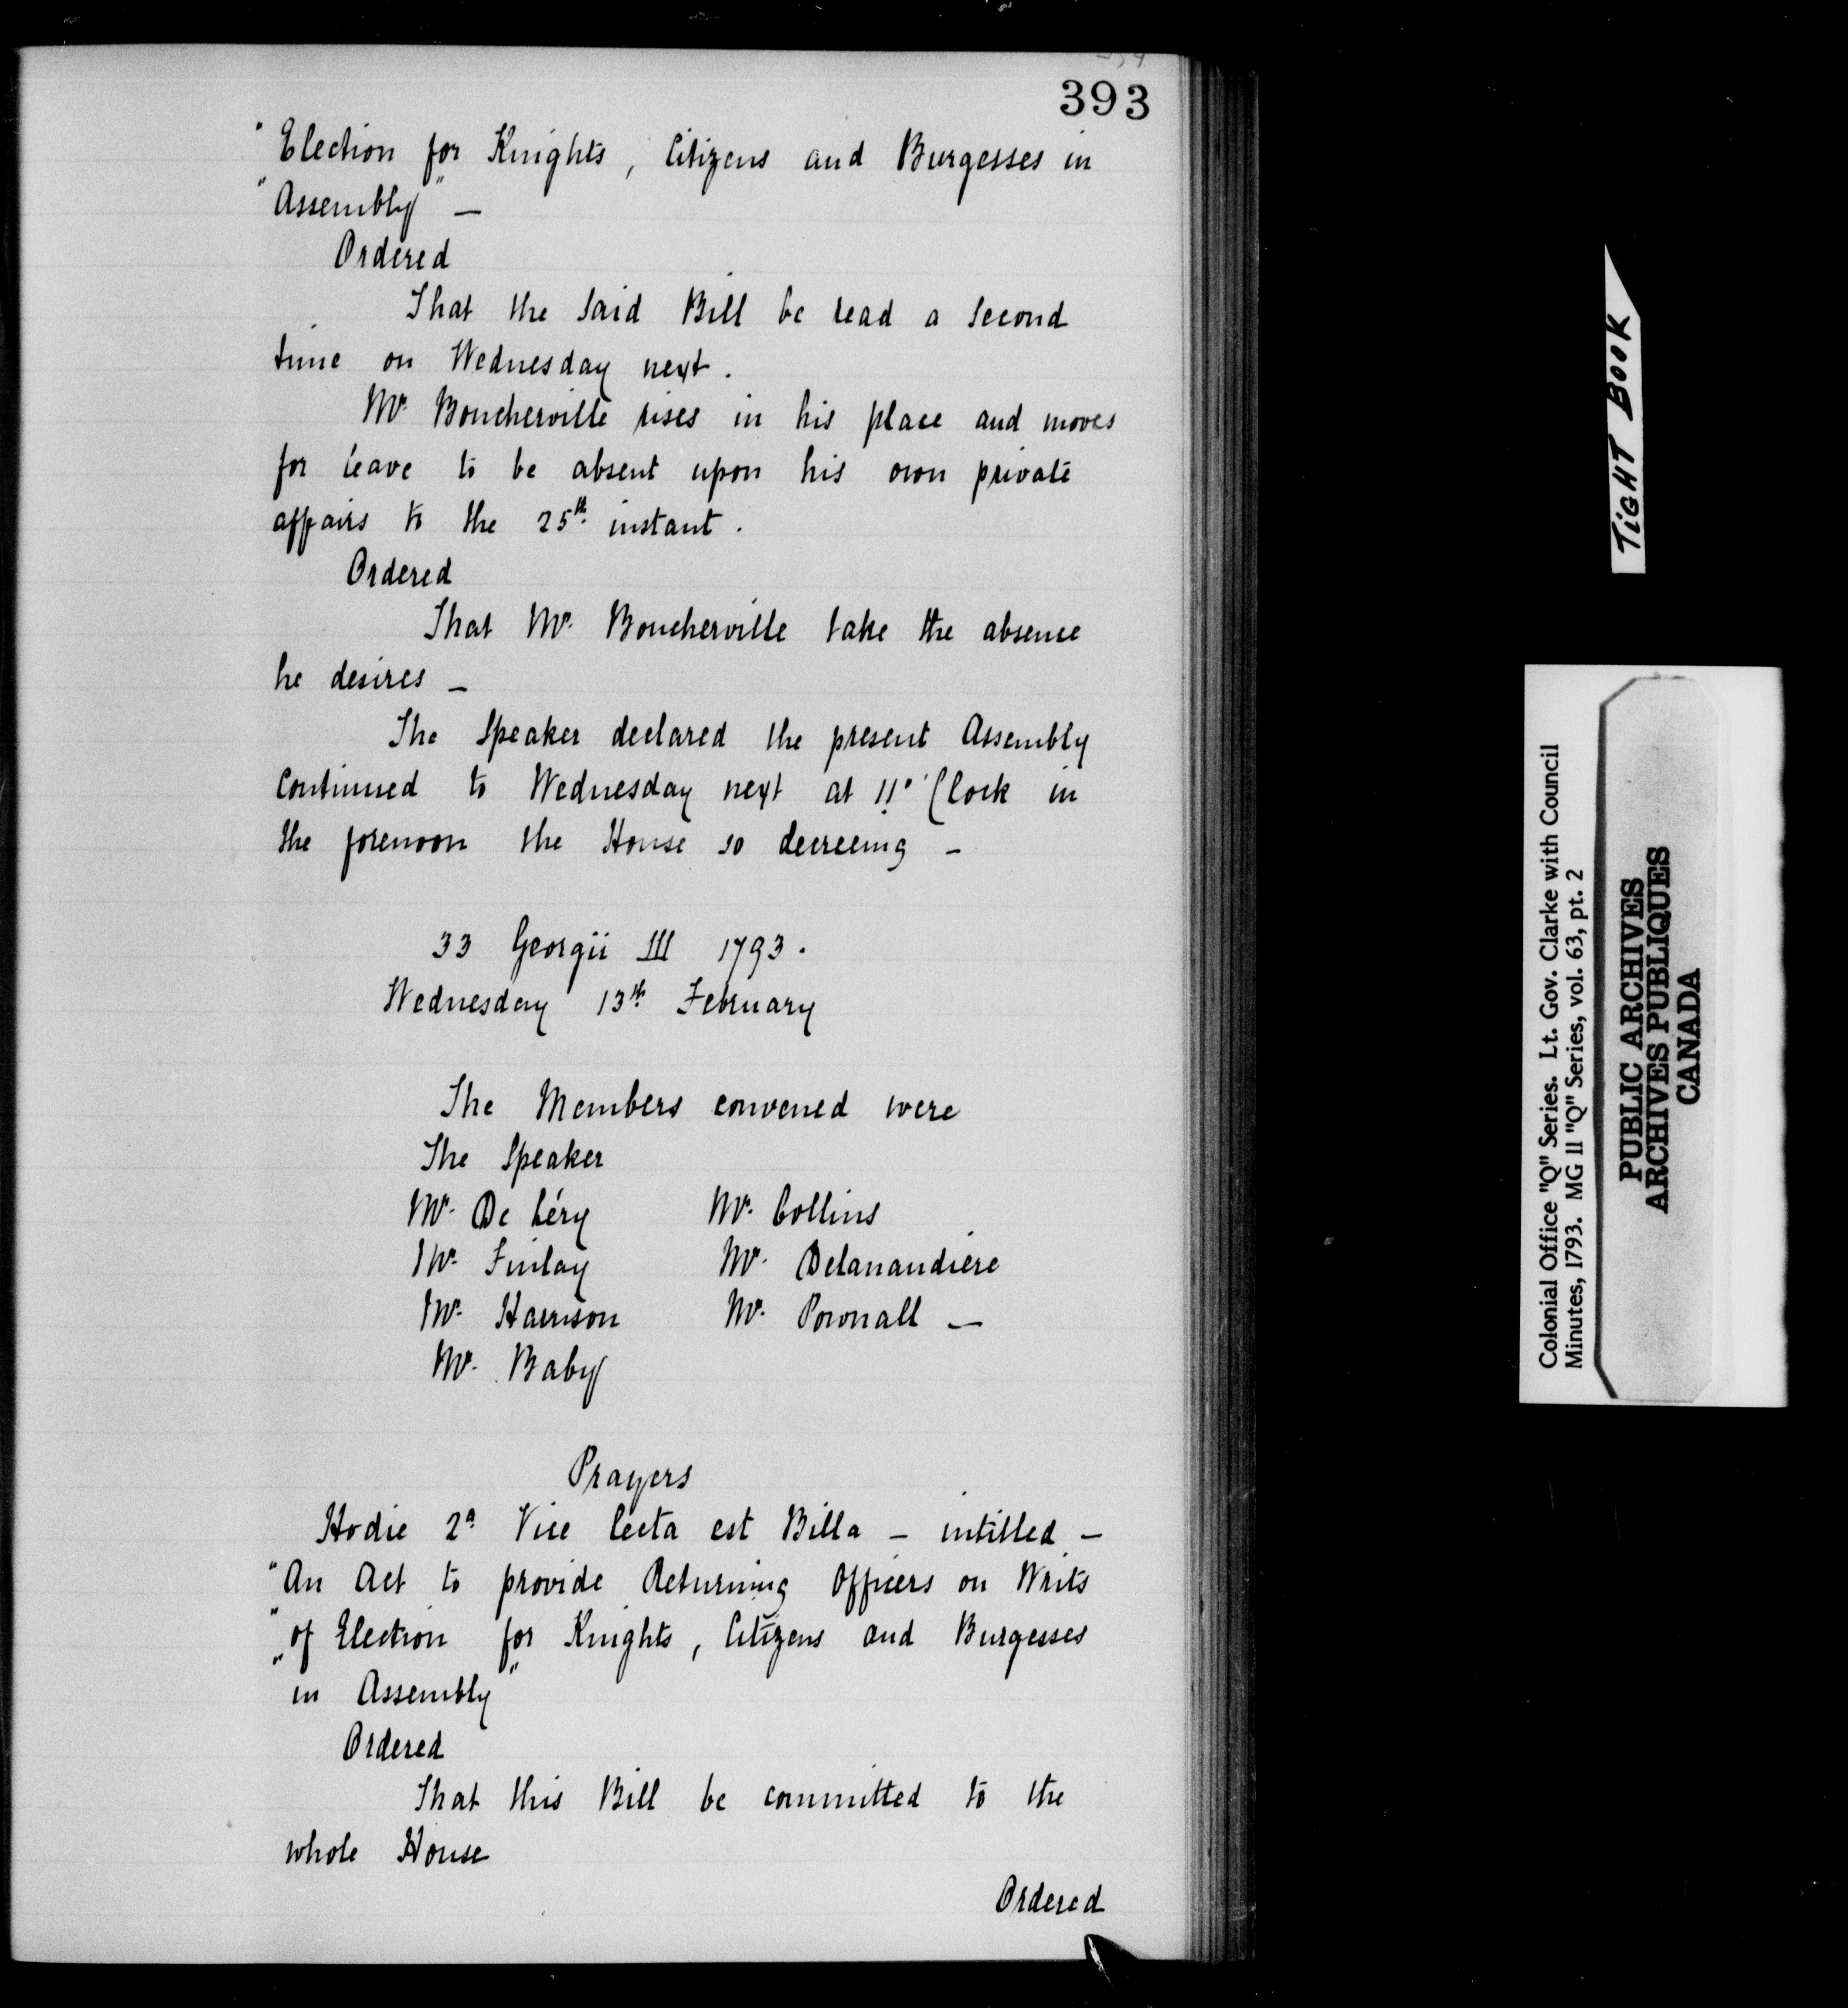 393
"Election for Knights, Citizens and Burgesses in
"Assembly" —
Ordered
That the Said Bill be read a Second
time on Wednesday next.
Mr. Boucherville rises in his place and moves
for leave to be absent upon his own private
affairs to the 25th instant.
Ordered
That Mr. Boucherville take the absence
he desires —
The Speaker declared the present Assembly
Continued to Wednesday next at 11 o'Clock in
the forenoon the House so decreeing —
33 Georgii III 1793.
Wednesday 13th February
The Members convened were
The Speaker
Mr. De Léry Mr. Collins
Mr. Finlay Mr. Delanaudiere
Mr. Harrison Mr. Pownall —
Mr. Baby
Prayers
Hodie 2a Vice lecta est Billa — intitled —
"An Act to provide Returning Officers on Writs
"of Election for Knights, Citizens and Burgesses
"in Assembly"
Ordered
That this Bill be committed to the
whole House
Ordered
TIGHT BOOK
Colonial Office "Q" Series. Lt. Gov. Clarke with Council
Minutes, 1793. MG 11 "Q" Series, vol. 63, pt. 2
PUBLIC ARCHIVES
ARCHIVES PUBLIQUES
CANADA